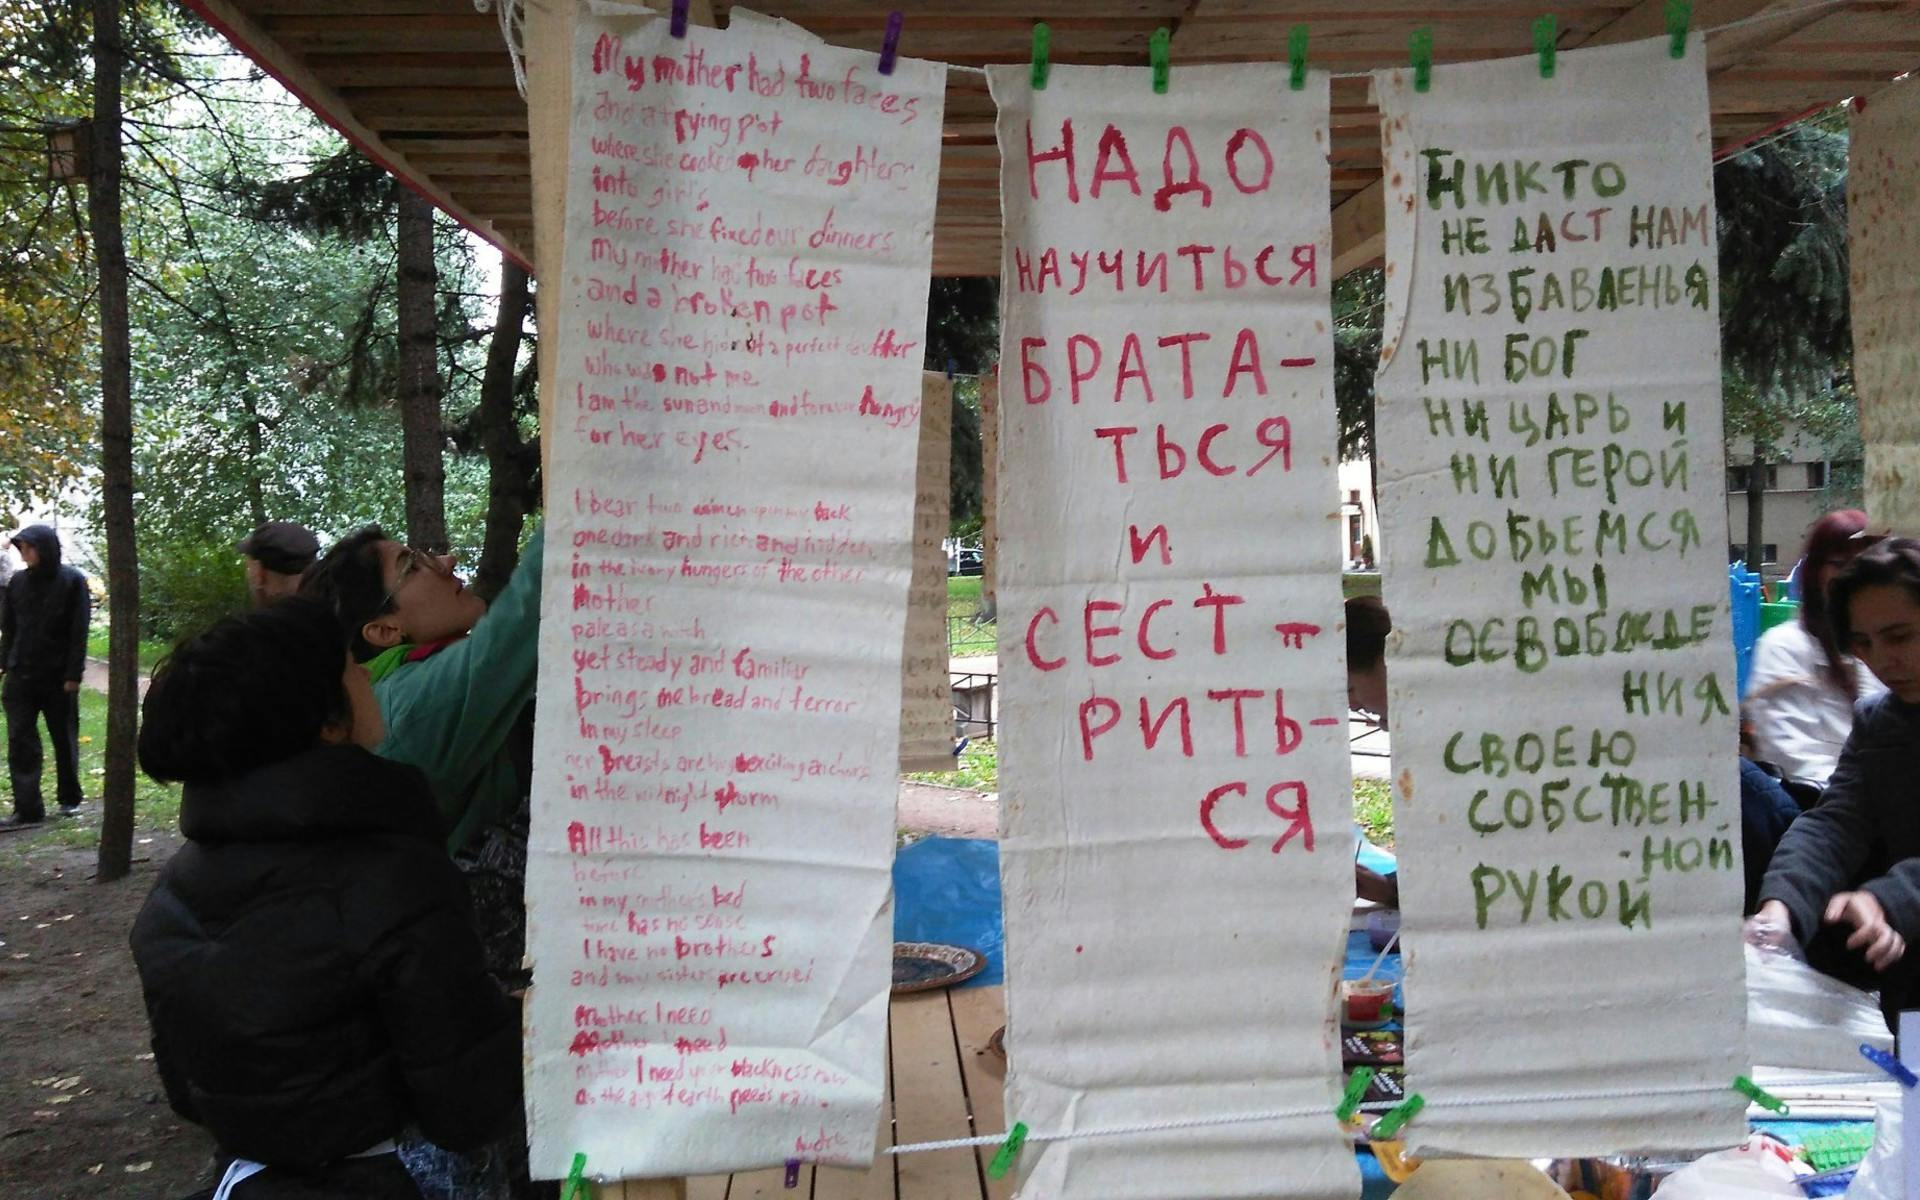 My mother had two faces
and a frying pot
where she cooked up her daughters
into girls
before she fixed our dinners.
My mother had two faces
and a broken pot
where she hid out a perfect daughter
who was not me
I am the sun and moon and forever hungry
for her eyes.
I bear two women upon my back
one dark and rich and hidden
in the ivory hungers of the other
Mother
pale as a witch
yet steady and familiar
brings me bread and terror
in my sleep
her breasts are huge exciting anchors
in the midnight storm
All this has been
before
in my mother's bed
time has no sense
I have no brothers
and my sisters are cruel
Mother, I need
Mother I need
mother I need your blackness now
as the august earth needs rain.
Audre
НАДО
НАУЧИТЬСЯ
БРАТА-
ТЬСЯ
И
СЕСТ-
РИТЬ-
СЯ
НИКТО
НЕ ДАСТ НАМ
ИЗБАВЛЕНЬЯ
НИ БОГ
НИ ЦАРЬ И
НИ ГЕРОЙ
ДОБЬЕМСЯ
МЫ
ОСВОБОЖДЕ
НИЯ
СВОЕЮ
СОБСТВЕН-
-НОЙ
РУКОЙ